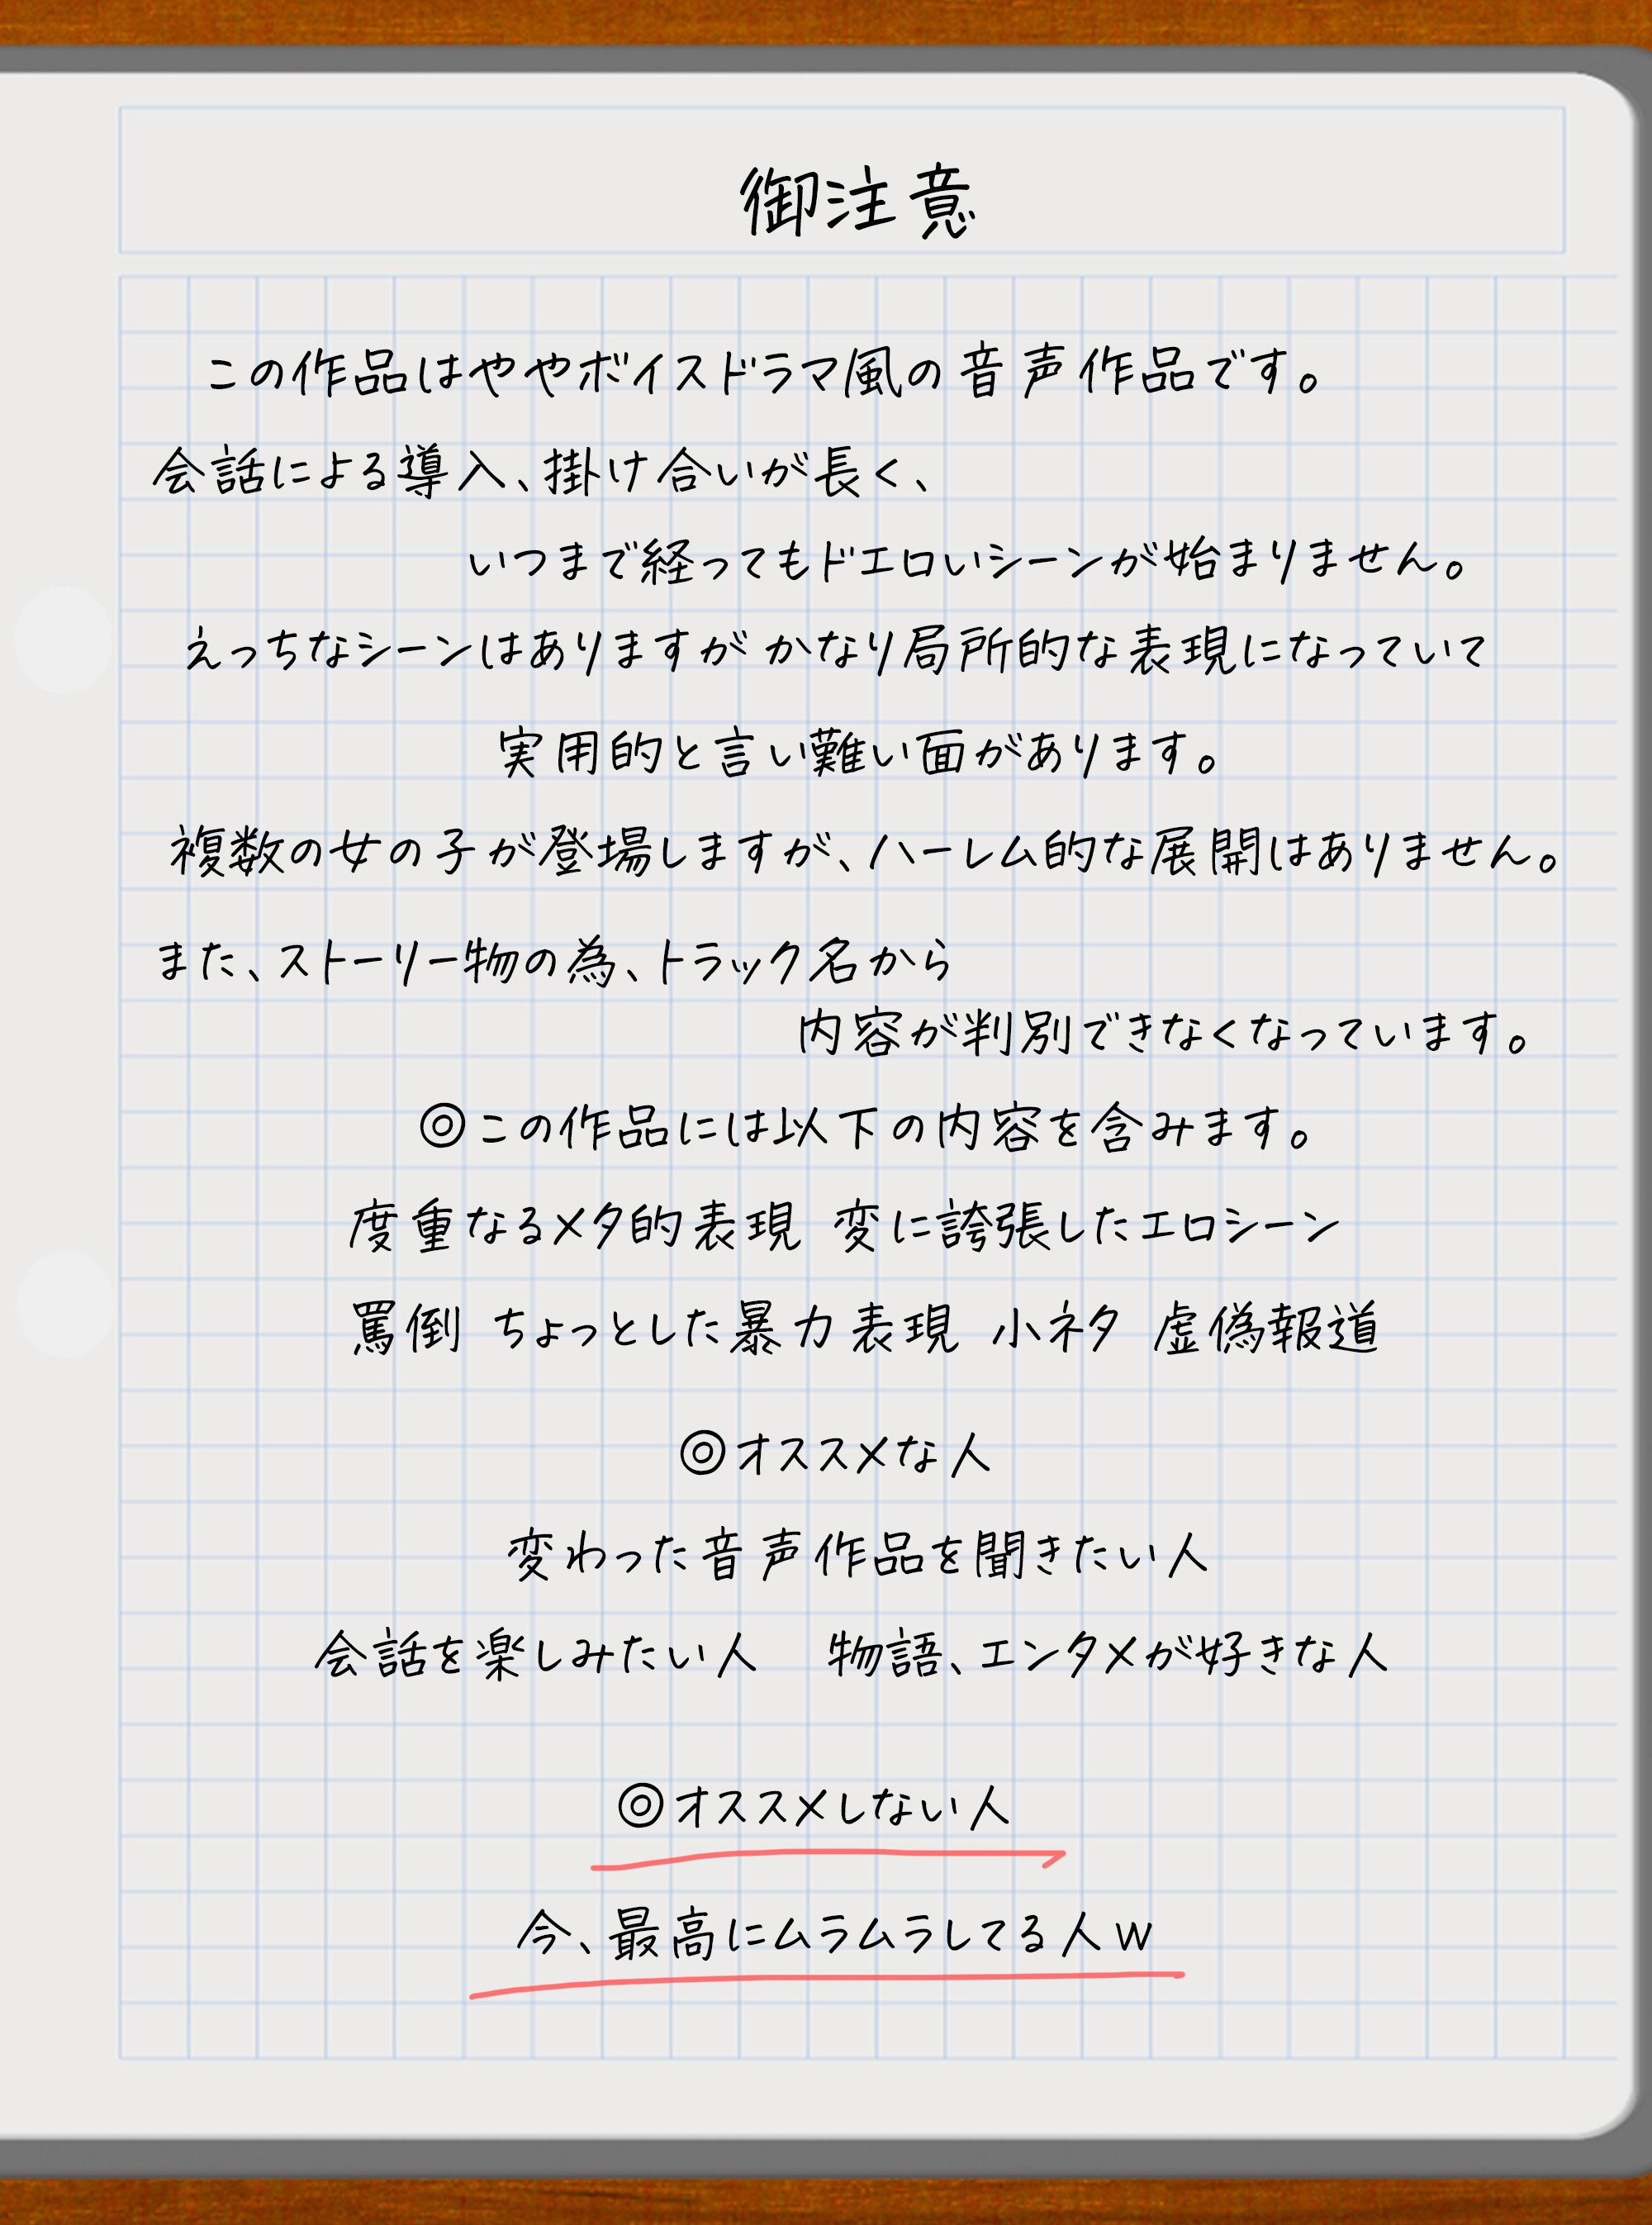 御注意
この作品はややボイスドラマ風の音声作品です。
会話による導入、掛け合いが長く、
いつまで経ってもドエロいシーンが始まりません。
えっちなシーンはありますが かなり局所的な表現になっていて
実用的と言い難い面があります。
複数の女の子が登場しますが、ハーレム的な展開はありません。
また、ストーリー物の為、トラック名から
内容が判別できなくなっています。
◎この作品には以下の内容を含みます。
度重なるメタ的表現 変に誇張したエロシーン
罵倒 ちょっとした暴力表現 小ネタ 虚偽報道
◎オススメな人
変わった音声作品を聞きたい人
会話を楽しみたい人 物語、エンタメが好きな人
◎オススメしない人
今、最高にムラムラしてる人w